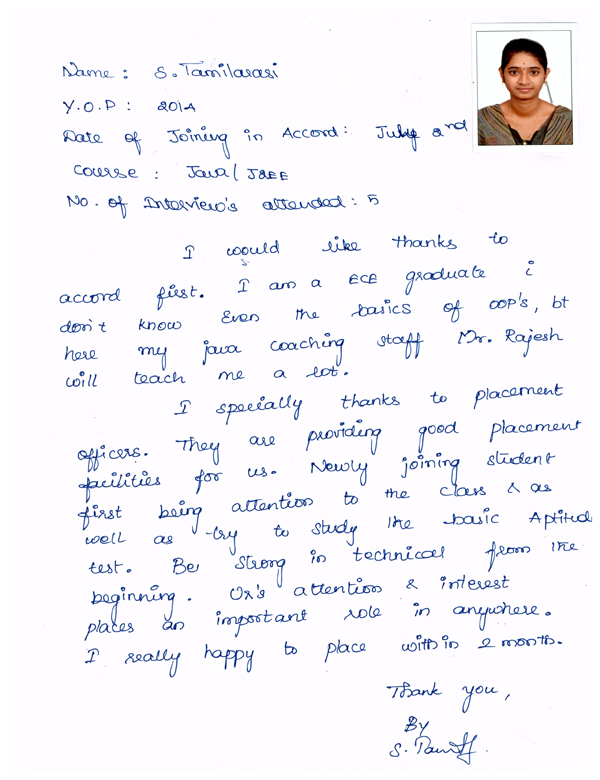 Name : S. Tamilarasi
Y.O.P : 2014
Date of Joining in Accord : July 2nd
Course : Java / J2EE
No. of Interview's attended : 5
I would like thanks to
accord first. I am a ECE graduate i
don't know Even the basics of OOP's, bt
here my java coaching staff Mr. Rajesh
will teach me a lot.
I specially thanks to placement
officers. They are providing good placement
facilities for us. Newly joining student
first being attention to the class & as
well as try to study the basic Aptitud
test. Be strong in technical from the
beginning. Ur's attention & interest
places an important role in anywhere.
I really happy to place within 2 month.
Thank you,
By
S.